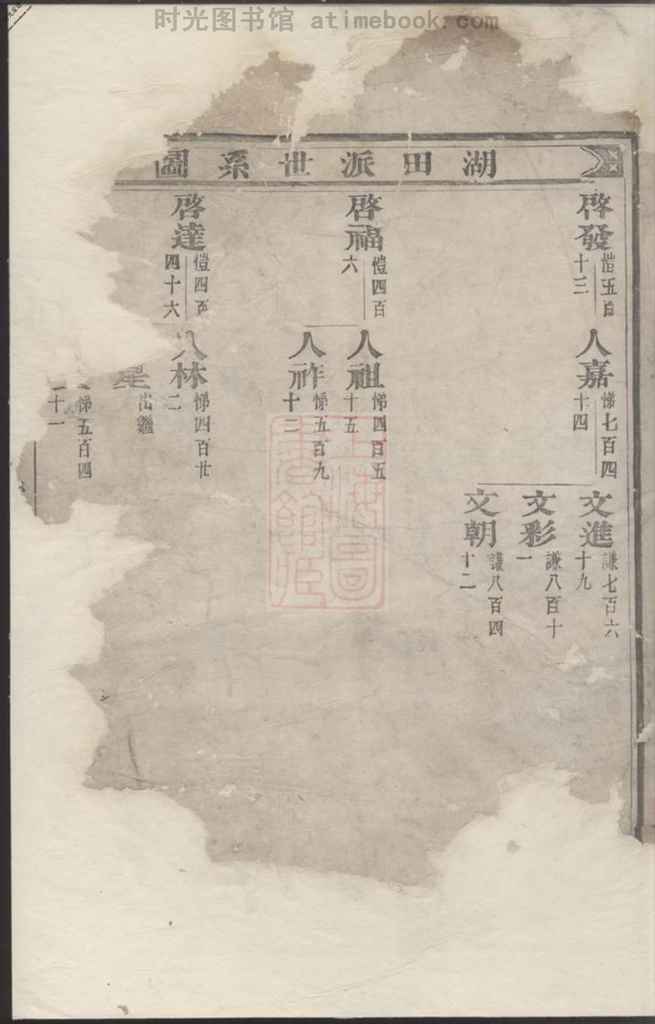 时光图书馆 atimebook.com
湖田派世系圖
啓發
愷五百
十三
人嘉
悌七百四
十四
文進
謙七百六
十九
文彩
謙八百十
一
文朝
謙八百四
十二
啓福
愷四百
六
人祖
悌四百五
十五
人祚
悌五百九
十二
啓達
愷四百
四十六
人林
悌四百廿
二
星
出繼
悌五百四
十一